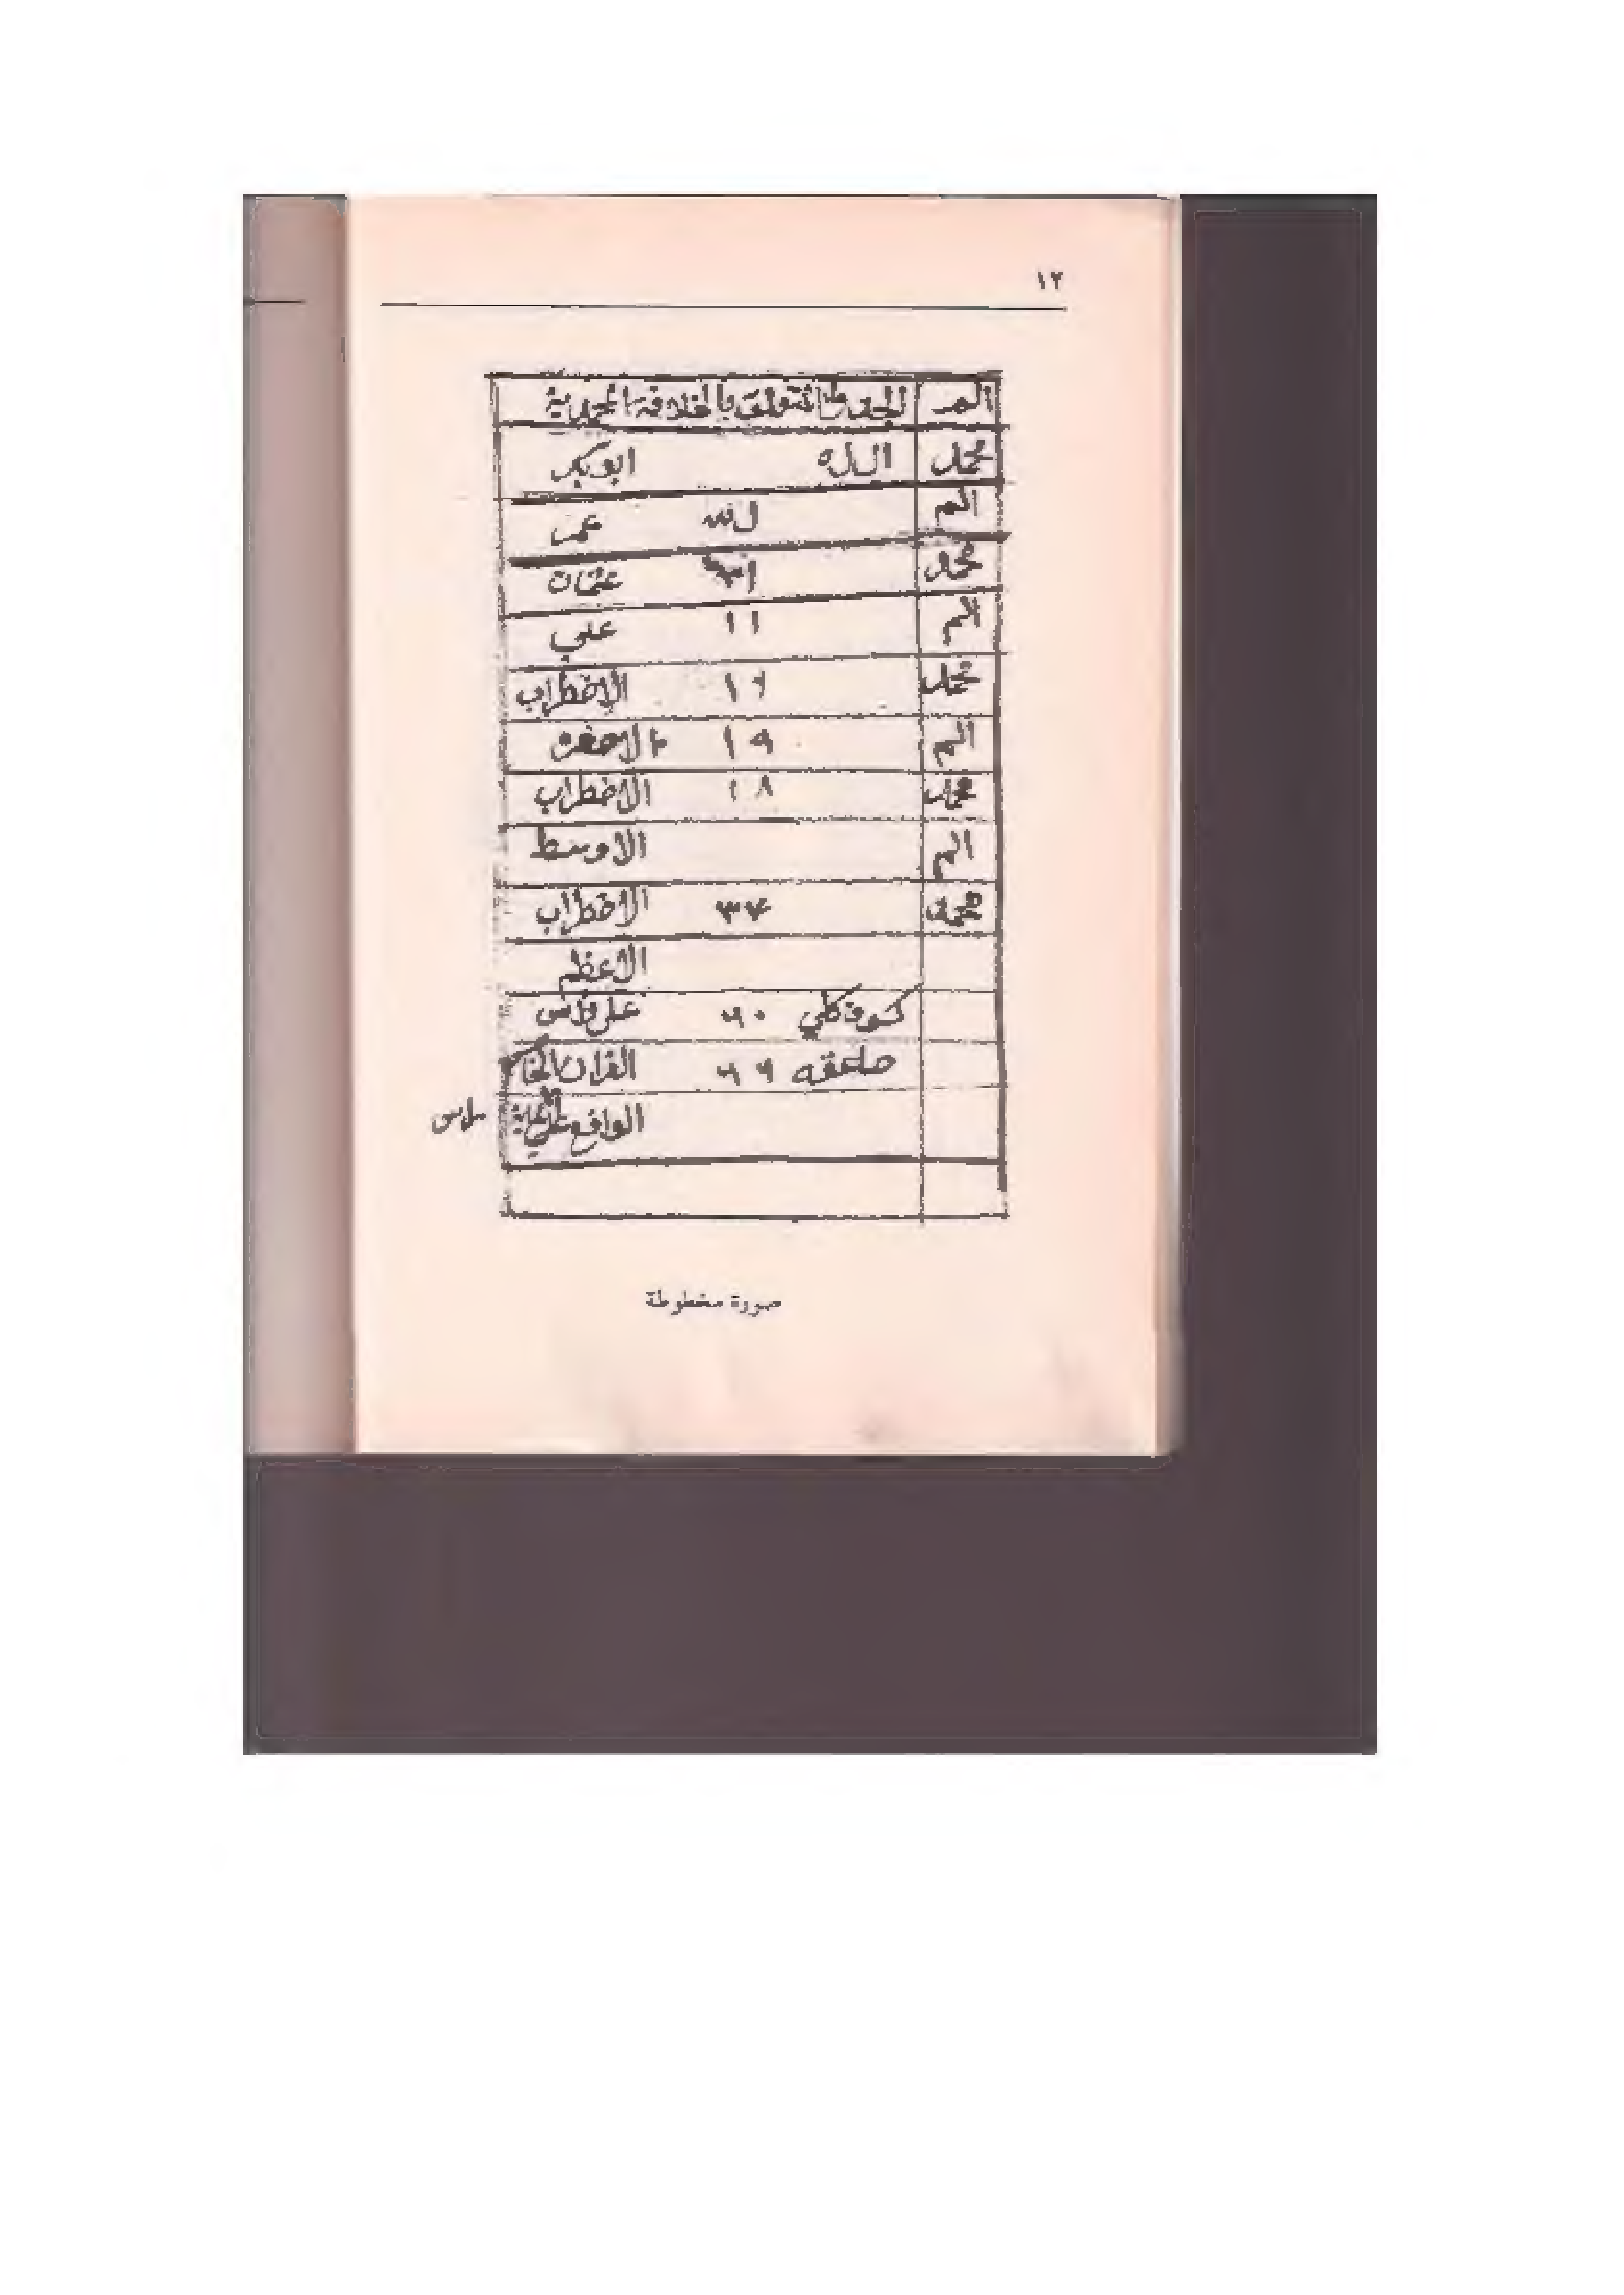 ١٢
الم الجدول المتعلق بالخلافة المحمدية
محمد الله ابو بكر
الم لله عمر
محمد عثمان
الم ١١ علي
محمد ١٦ الاضطراب
الم ١٩ الاصغر
محمد ١٨ الاضطراب
الم الاوسط
محمد ٣٧ الاضطراب
الاعظم
٦٠ على راس
صاعقه ٦٦ القران
الواقع راس
صورة مخطوطة